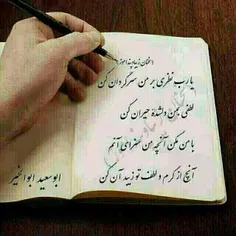 یا رب نظری بر من سرگردان کن
لطفی بمن دلشدهٔ حیران کن
با من مکن آنچه من سزای آنم
آنچ از کرم و لطف تو زیبد آن کن
ابوسعید ابوالخیر